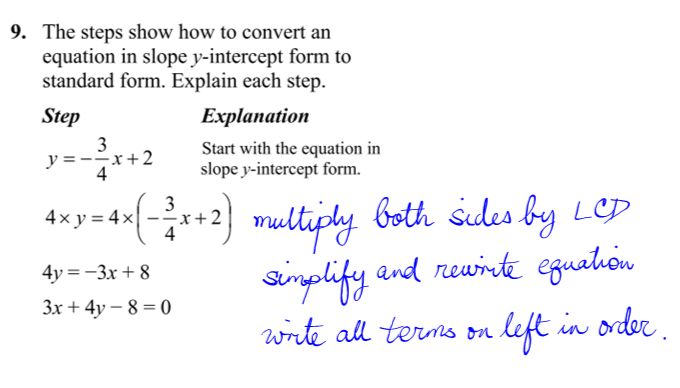 9. The steps show how to convert an
equation in slope y-intercept form to
standard form. Explain each step.
Step Explanation
y = -3/4x + 2 Start with the equation in
slope y-intercept form.
4 × y = 4 × (-3/4x + 2) multiply both sides by LCD
4y = -3x + 8 simplify and rewrite equation
3x + 4y - 8 = 0 write all terms on left in order.